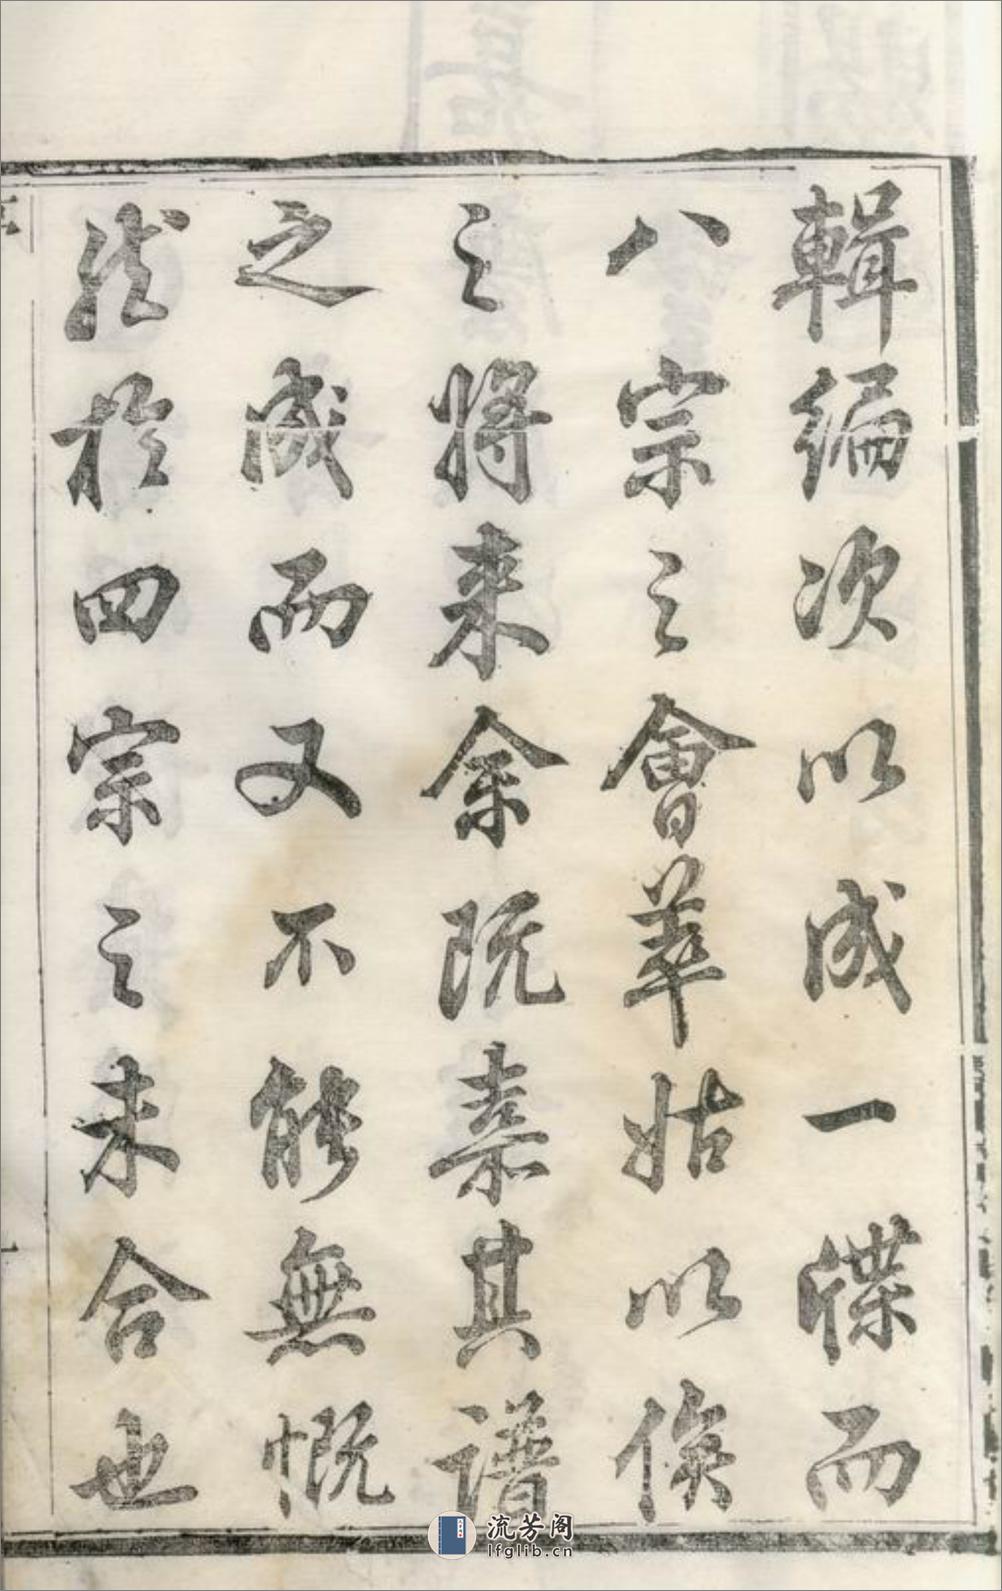 輯編次以成一牒而
八宗之會萃姑以俟
之將來余既其譜
之成而又不能無慨
然於四宗之未合也
流芳阁
lfglib.cn